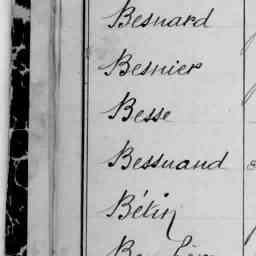 Besnard
Besnier
Besse
Bessuand
Bétin